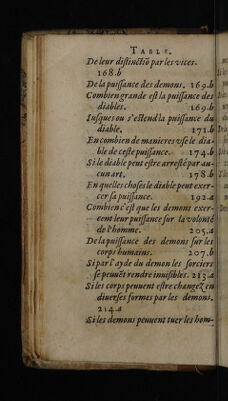 TABLE.
De leur distinctiõ par les vices.
168.b
De la puissance des demons. 169.b
Combien grande est la puissance des
diables. 169.b
Iusques ou s'estend la puissance du
diable. 171.b
En combien de manieres vse le dia-
ble de ceste puissance. 174.b
Si le diable peut estre arresté par au-
cun art. 178.b
En quelles choses le diable peut exer-
cer sa puissance. 192.a
Combien c'est que les demons exer-
cent leur puissance sur la volonté
de l'homme. 205.a
De la puissance des demons sur les
corps humains. 207.b
Si par l'ayde du demon les sorciers
se peuuẽt rendre inuisibles. 213.a
Si les corps peuuent estre changez en
diuerses formes par les demons.
214.a
Si les demons peuuent tuer les hom-